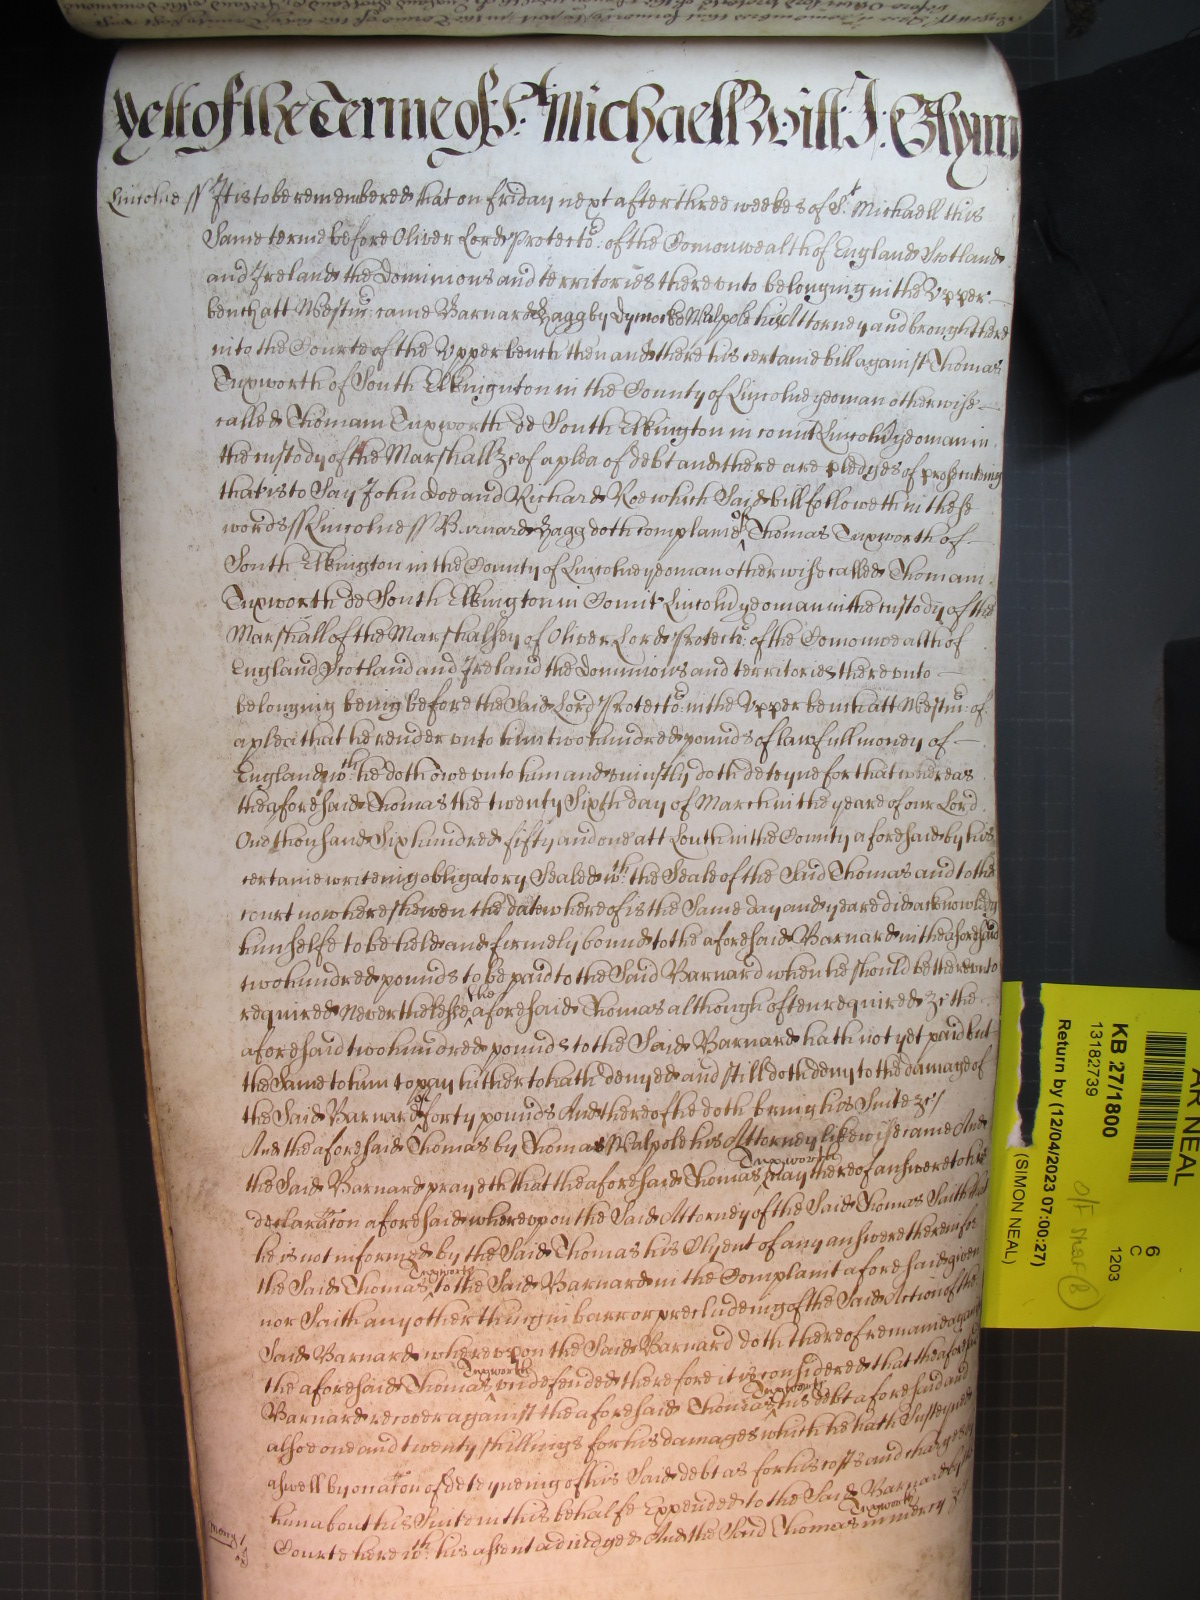 Yett of the Terme of St. Michaell Will: J: Glynn
Lincolne ss It is to be remembered that on friday next after three weekes of St. Michaell this
Same terme before Oliver Lord Protector: of the Comonwealth of England Scotland
and Ireland the Dominions and territories thereunto belonging in the Upper
bench att Westmr: came Barnard Zagg by Dymocke Walpole his Attorney and brought here
into the Courte of the Upper bench then and there his certaine bill against Thomas
Tupworth of South Elkington in the County of Lincolne yeoman otherwise
called Thomam Tupworth de South Elkington in comit Lincoln yeoman in
the custody of the Marshall &c of a plea of debt and there are pledges of prosecuting
that is to Say John Doe and Richard Roe which Said bill followeth in these
words ss Lincolne ss Barnard Zagg doth complaine of Thomas Tupworth of
South Elkington in the County of Lincolne yeoman otherwise called Thomam
Tupworth de South Elkington in Comit Lincoln yeoman in the custody of the
Marshall of the Marshalsey of Oliver Lord Protector: of the Comonwealth of
England Scotland and Ireland the Dominions and territories thereunto
belonging being before the Said Lord Protector: in the Upper bench att Westmr: of
a plea that he render unto him two hundred pounds of lawfull money of
England wch: he doth owe unto him and uniustly doth deteyne for that whereas
the aforesaid Thomas the twenty Sixth day of March in the yeare of our Lord
One thousand Six hundred fifty and one att Louth in the County aforesaid by his
certaine writeing obligatory Sealed wth: the Seale of the Said Thomas and to the
court now here shewen the date whereof is the Same day and yeare did acknowledg
himselfe to be held and firmely bound to the aforesaid Barnard in the aforesaid
two hundred pounds to be paid to the Said Barnard when he should be thereunto
required Neverthelesse the aforesaid Thomas although often required &c the
aforesaid two hundred pounds to the Said Barnard hath not yet paid but
the Same to him to pay hitherto hath denyed and still doth deny to the damage of
the Said Barnard of forty pounds And thereof he doth bring his Suite &c /
And the aforesaid Thomas by Thomas Walpole his Attorney likewise came And
the Said Barnard prayeth that the aforesaid Thomas Tupworth may thereof answere to his
declaration aforesaid whereupon the Said Attorney of the Said Thomas Saith that
he is not informed by the Said Thomas his Clyent of any answere therein for
the Said Thomas Tupworth to the Said Barnard in the Complaint aforesaid given
nor Saith any other thing in barr or precludeing of the Said Action of the
Said Barnard whereupon the Said Barnard doth thereof remaine against
the aforesaid Thomas Tupworth undefended therefore it is considered that the aforesaid
Barnard recover against the aforesaid Thomas Tupworth his debt aforesaid and
alsoe one and twenty shillings for his damages which he hath Susteyned
aswell by occation of deteyneing of his Said debt as for his costs and charges by
him about his Suite in this behalfe Expended to the Said Barnard by the
Courte here wth: his assent adiudged And the Said Thomas Tupworth in mercy &c
AR NEAL
KB 27/1800
13182739
Return by (12/04/2023 07:00:27)
(SIMON NEAL)
6
C
1203